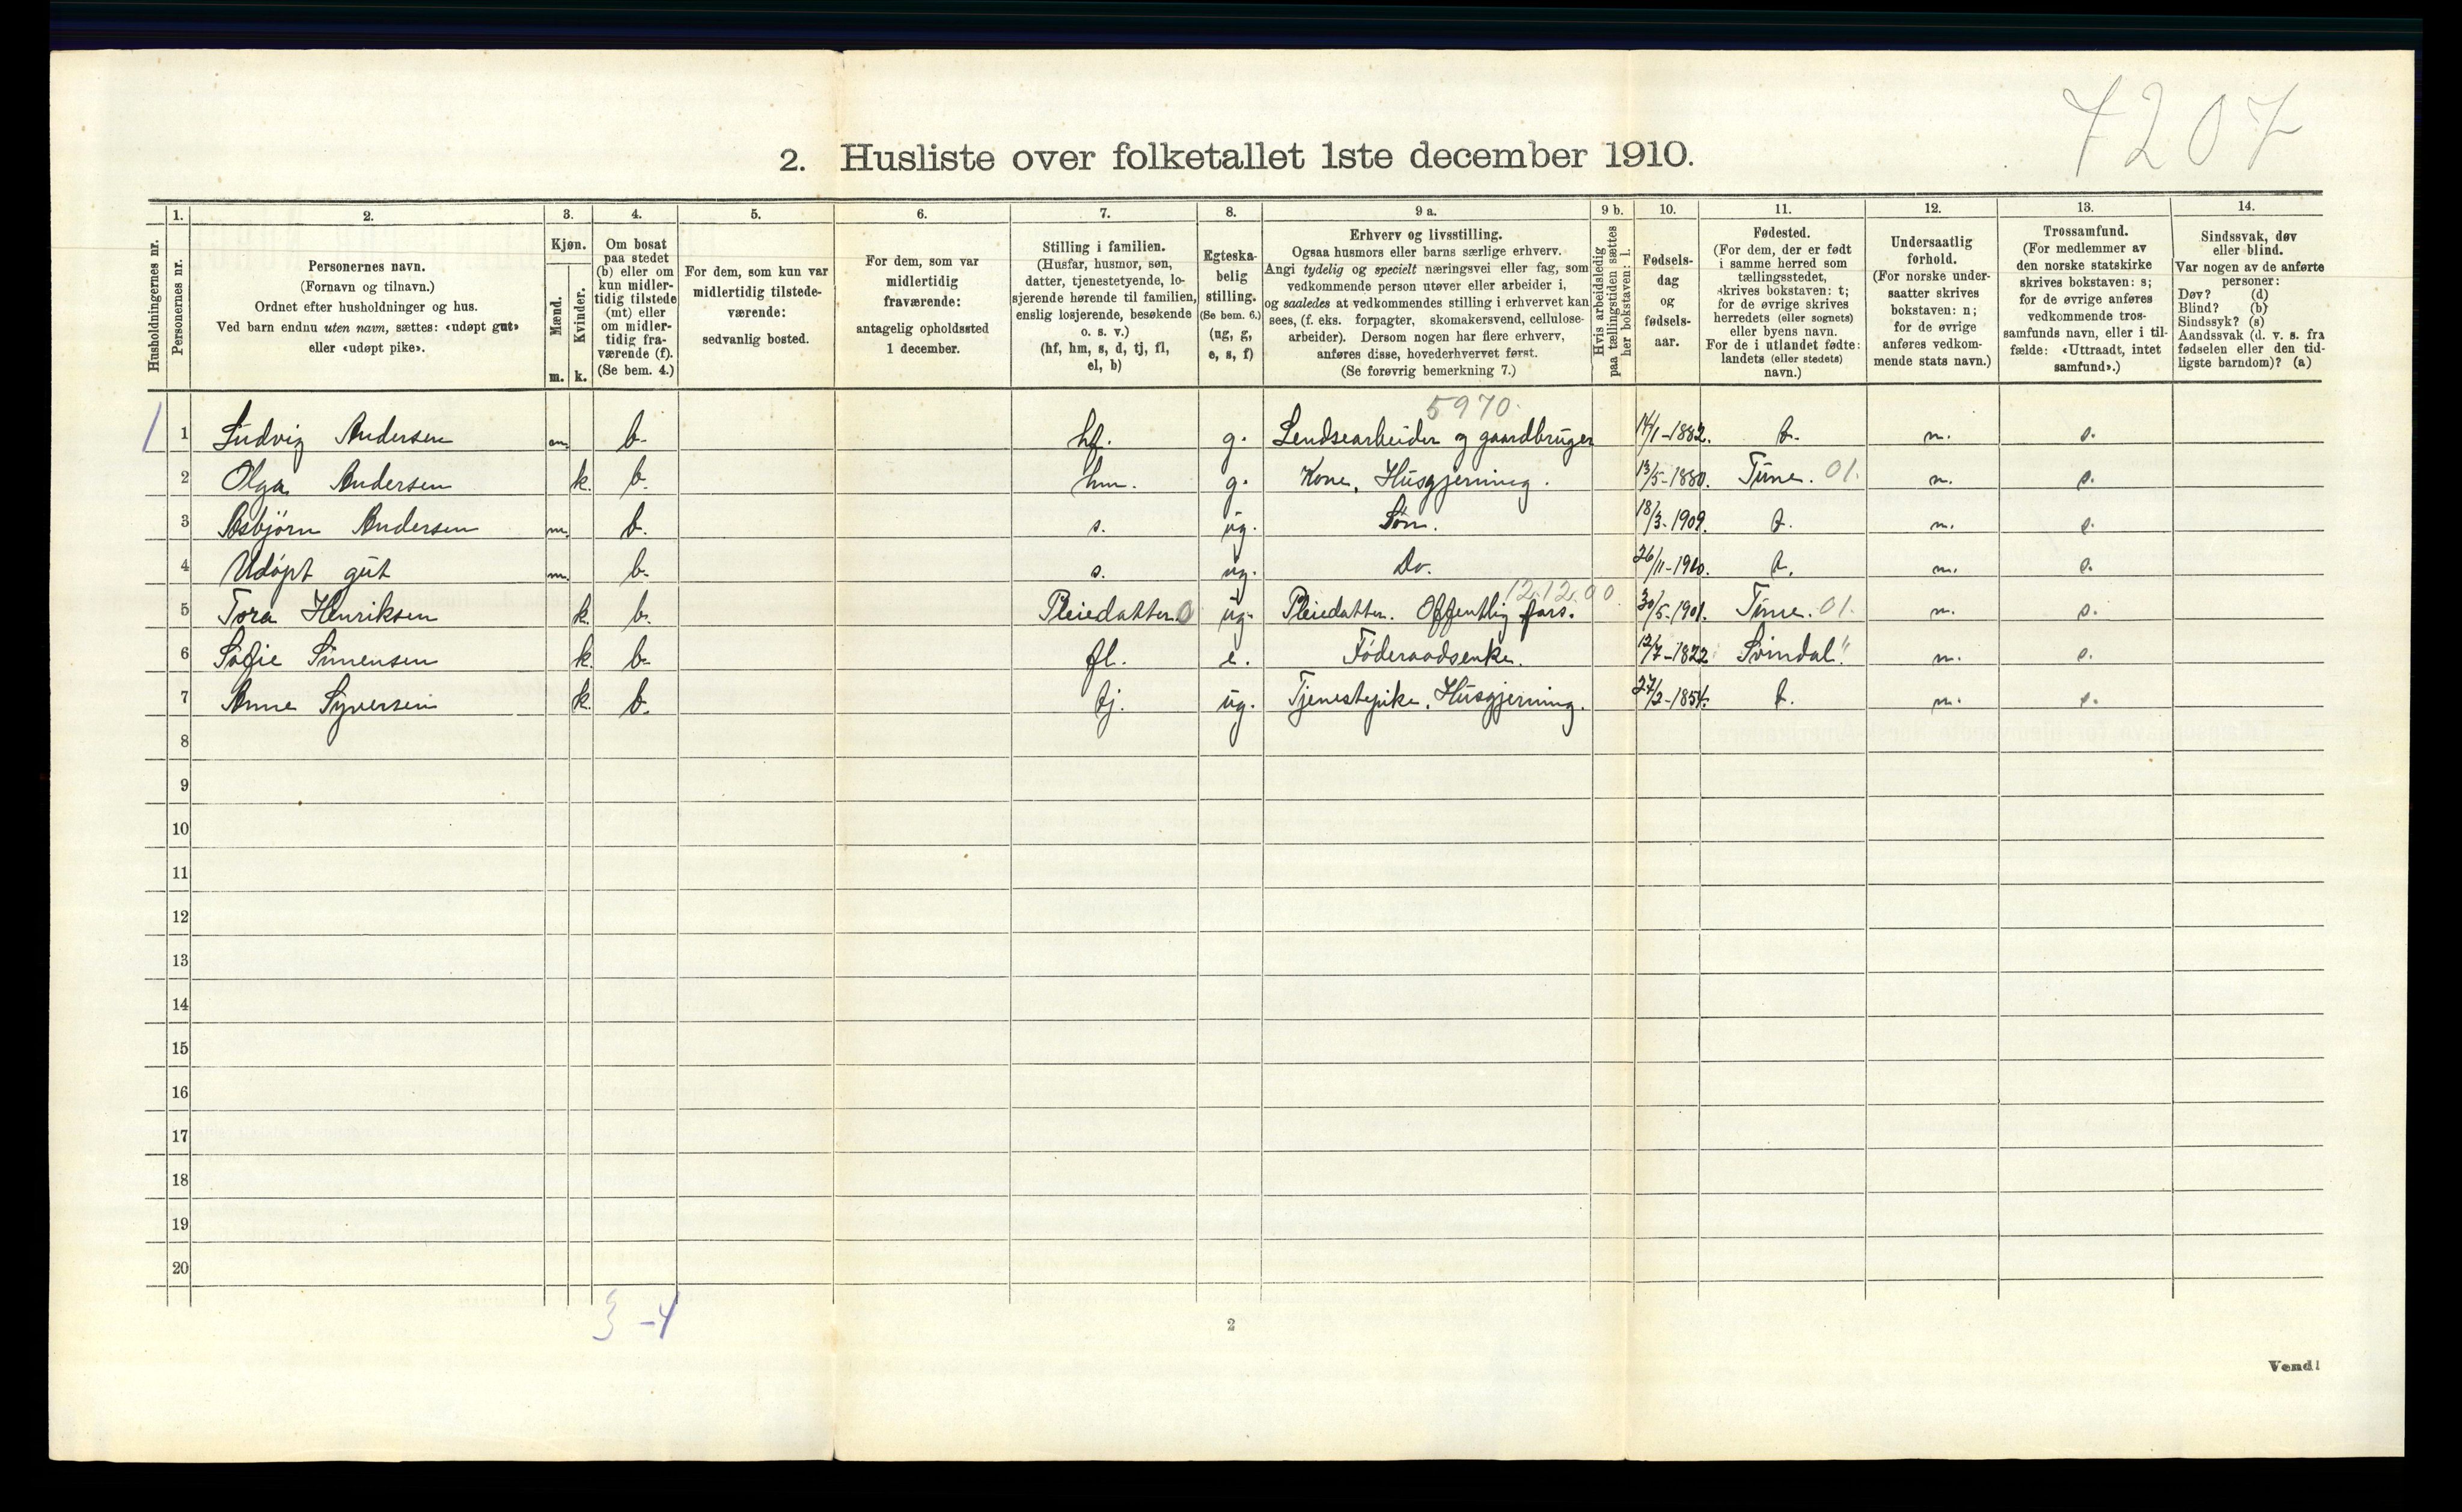 7207
2. Husliste over folketallet 1ste december 1910.
Husholdningernes nr.
1.
Personernes nr.
2.
Personernes navn.
(Fornavn og tilnavn.)
Ordnet efter husholdninger og hus.
Ved barn endnu uten navn, sættes: «udøpt gut»
eller «udøpt pike».
3.
Kjøn.
Mænd.
Kvinder.
m. k.
4.
Om bosat
paa stedet
(b) eller om
kun midler-
tidig tilstede
(mt) eller
om midler-
tidig fra-
værende (f).
(Se bem. 4.)
5.
For dem, som kun var
midlertidig tilstede-
værende:
sedvanlig bosted.
6.
For dem, som var
midlertidig
fraværende:
antagelig opholdssted
1 december.
7.
Stilling i familien.
(Husfar, husmor, søn,
datter, tjenestetyende, lo-
sjerende hørende til familien,
enslig losjerende, besøkende
o. s. v.)
(hf, hm, s, d, tj, fl,
el, b)
8.
Egteska-
belig
stilling.
(Se bem. 6.)
(ug, g,
e, s, f)
9 a.
Erhverv og livsstilling.
Ogsaa husmors eller barns særlige erhverv.
Angi tydelig og specielt næringsvei eller fag, som
vedkommende person utøver eller arbeider i,
og saaledes at vedkommendes stilling i erhvervet kan
sees, (f. eks. forpagter, skomakersvend, cellulose-
arbeider). Dersom nogen har flere erhverv,
anføres disse, hovederhvervet først.
(Se forøvrig bemerkning 7.)
9 b.
Hvis arbeidsledig
paa tællingstiden sættes
her bokstaven: l.
10.
Fødsels-
dag
og
fødsels-
aar.
11.
Fødested.
(For dem, der er født
i samme herred som
tællingsstedet,
skrives bokstaven: t;
for de øvrige skrives
herredets (eller sognets)
eller byens navn.
For de i utlandet fødte:
landets (eller stedets)
navn.)
12.
Undersaatlig
forhold.
(For norske under-
saatter skrives
bokstaven: n;
for de øvrige
anføres vedkom-
mende stats navn.)
13.
Trossamfund.
(For medlemmer av
den norske statskirke
skrives bokstaven: s;
for de øvrige anføres
vedkommende tros-
samfunds navn, eller i til-
fælde: «Uttraadt, intet
samfund».)
14.
Sindssvak, døv
eller blind.
Var nogen av de anførte
personer:
Døv? (d)
Blind? (b)
Sindssyk? (s)
Aandssvak (d. v. s. fra
fødselen eller den tid-
ligste barndom)? (a)
5970.
1 1 Ludvig Andersen m. b. hf. g. Lendsearbeider og gaardbruger 14/1-1882. t. n. s.
2 Olga Andersen k. b. hm. g. Kone, Husgjerning. 13/5-1880. Tune. 01. n. s.
3 Asbjørn Andersen m. b. s. ug. Søn. 18/3-1909. t. n. s.
4 Udøpt gut m. b. s. ug. Do. 26/11-1910. t. n. s.
12.12.00
5 Tora Henriksen k. b. Pleiedatter. 0 ug. Pleiedatter. Offentlig fors. 30/5-1901. Tune. 01. n. s.
6 Sofie Simensen k. b. fl. e. Føderaadsenke. 12/7-1822 Svindal. " n. s.
7 Anne Syversen k. b. tj. ug. Tjenestepike. Husgjerning. 27/2-1854. t. n. s.
8
9
10
11
12
13
14
15
16
17
18
19
20
3-4
2
Vend!